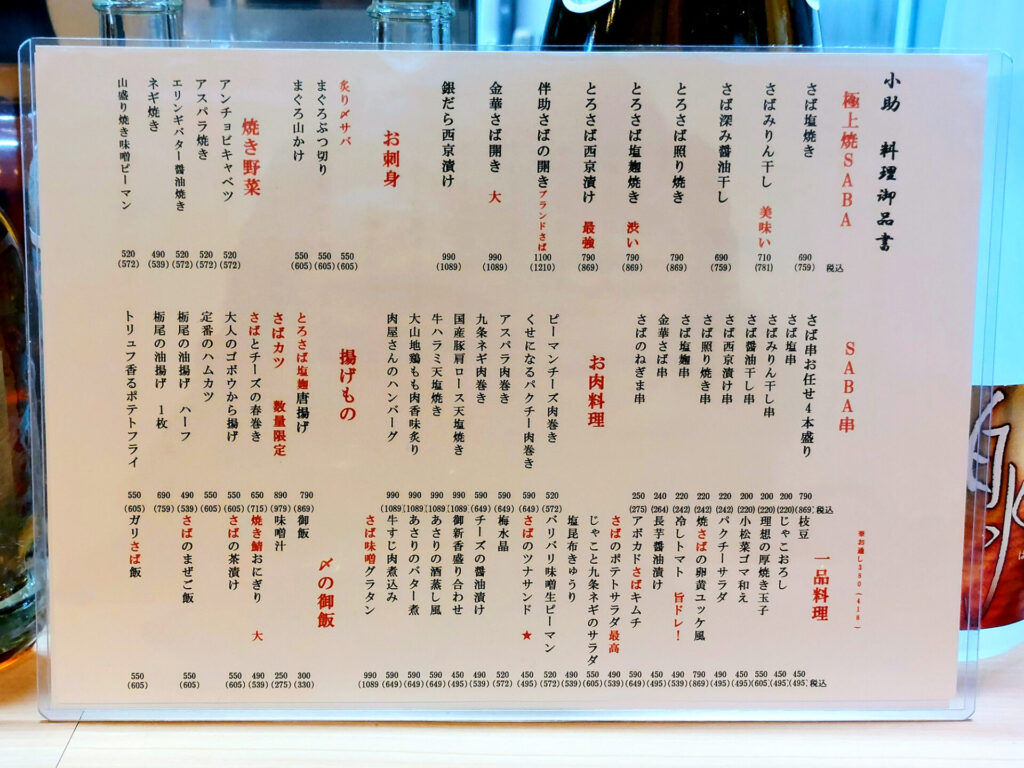 小助 料理御品書
極上焼SABA
さば塩焼き 690 (759) 税込
さばみりん干し 美味い 710 (781)
さば深み醤油干し 690 (759)
とろさば照り焼き 790 (869)
とろさば塩麹焼き 渋い 790 (869)
とろさば西京漬け 最強 790 (869)
伴助さばの開き ブランドさば 1100 (1210)
金華さば開き 大 990 (1089)
銀だら西京漬け 990 (1089)
お刺身
炙り〆サバ 550 (605)
まぐろぶつ切り 550 (605)
まぐろ山かけ 550 (605)
焼き野菜
アンチョビキャベツ 520 (572)
アスパラ焼き 520 (572)
エリンギバター醤油焼き 520 (572)
ネギ焼き 490 (539)
山盛り焼き味噌ピーマン 520 (572)
SABA串
さば串お任せ4本盛り 790 (869) 税込
さば塩串 200 (220)
さばみりん干し串 200 (220)
さば醤油干し串 200 (220)
さば西京漬け串 220 (242)
さば照り焼き串 220 (242)
さば塩麹串 220 (242)
金華さば串 240 (264)
さばのねぎま串 250 (275)
お肉料理
ピーマンチーズ肉巻き 520 (572)
くせになるパクチー肉巻き 590 (649)
アスパラ肉巻き 590 (649)
九条ネギ肉巻き 590 (649)
国産豚肩ロース天塩焼き 990 (1089)
牛ハラミ天塩焼き 990 (1089)
大山地鶏もも肉香味炙り 990 (1089)
肉屋さんのハンバーグ 990 (1089)
揚げもの
とろさば塩麹唐揚げ 790 (869)
さばカツ 数量限定 890 (979)
さばとチーズの春巻き 650 (715)
大人のゴボウから揚げ 550 (605)
定番のハムカツ 550 (605)
栃尾の油揚げ ハーフ 490 (539)
栃尾の油揚げ 1枚 690 (759)
トリュフ香るポテトフライ 550 (605)
※お通し380(418)
一品料理
枝豆 450 (495) 税込
じゃこおろし 450 (495)
理想の厚焼き玉子 550 (605)
小松菜ゴマ和え 450 (495)
パクチーサラダ 490
焼さばの卵黄ユッケ風 790 (869)
冷しトマト 旨ドレ! 490 (539)
長芋醤油漬け 450 (495)
アボカドさばキムチ 590 (649)
さばのポテトサラダ最高 490 (539)
じゃこと九条ネギのサラダ 550 (605)
塩昆布きゅうり 490 (539)
バリバリ味噌生ピーマン 520 (572)
さばのツナサンド ★ 490 (539)
梅水晶 520 (572)
チーズの醤油漬け 490 (539)
御新香盛り合わせ 450 (495)
あさりの酒蒸し風 590 (649)
あさりのバター煮 590 (649)
牛すじ肉煮込み 590 (649)
さば味噌グラタン 990 (1089
〆の御飯
御飯 300 (330)
味噌汁 250 (275)
焼き鯖おにぎり 大 490 (539)
さばの茶漬け 550 (605)
さばのまぜご飯 550 (605)
ガリさば飯 550 (605)